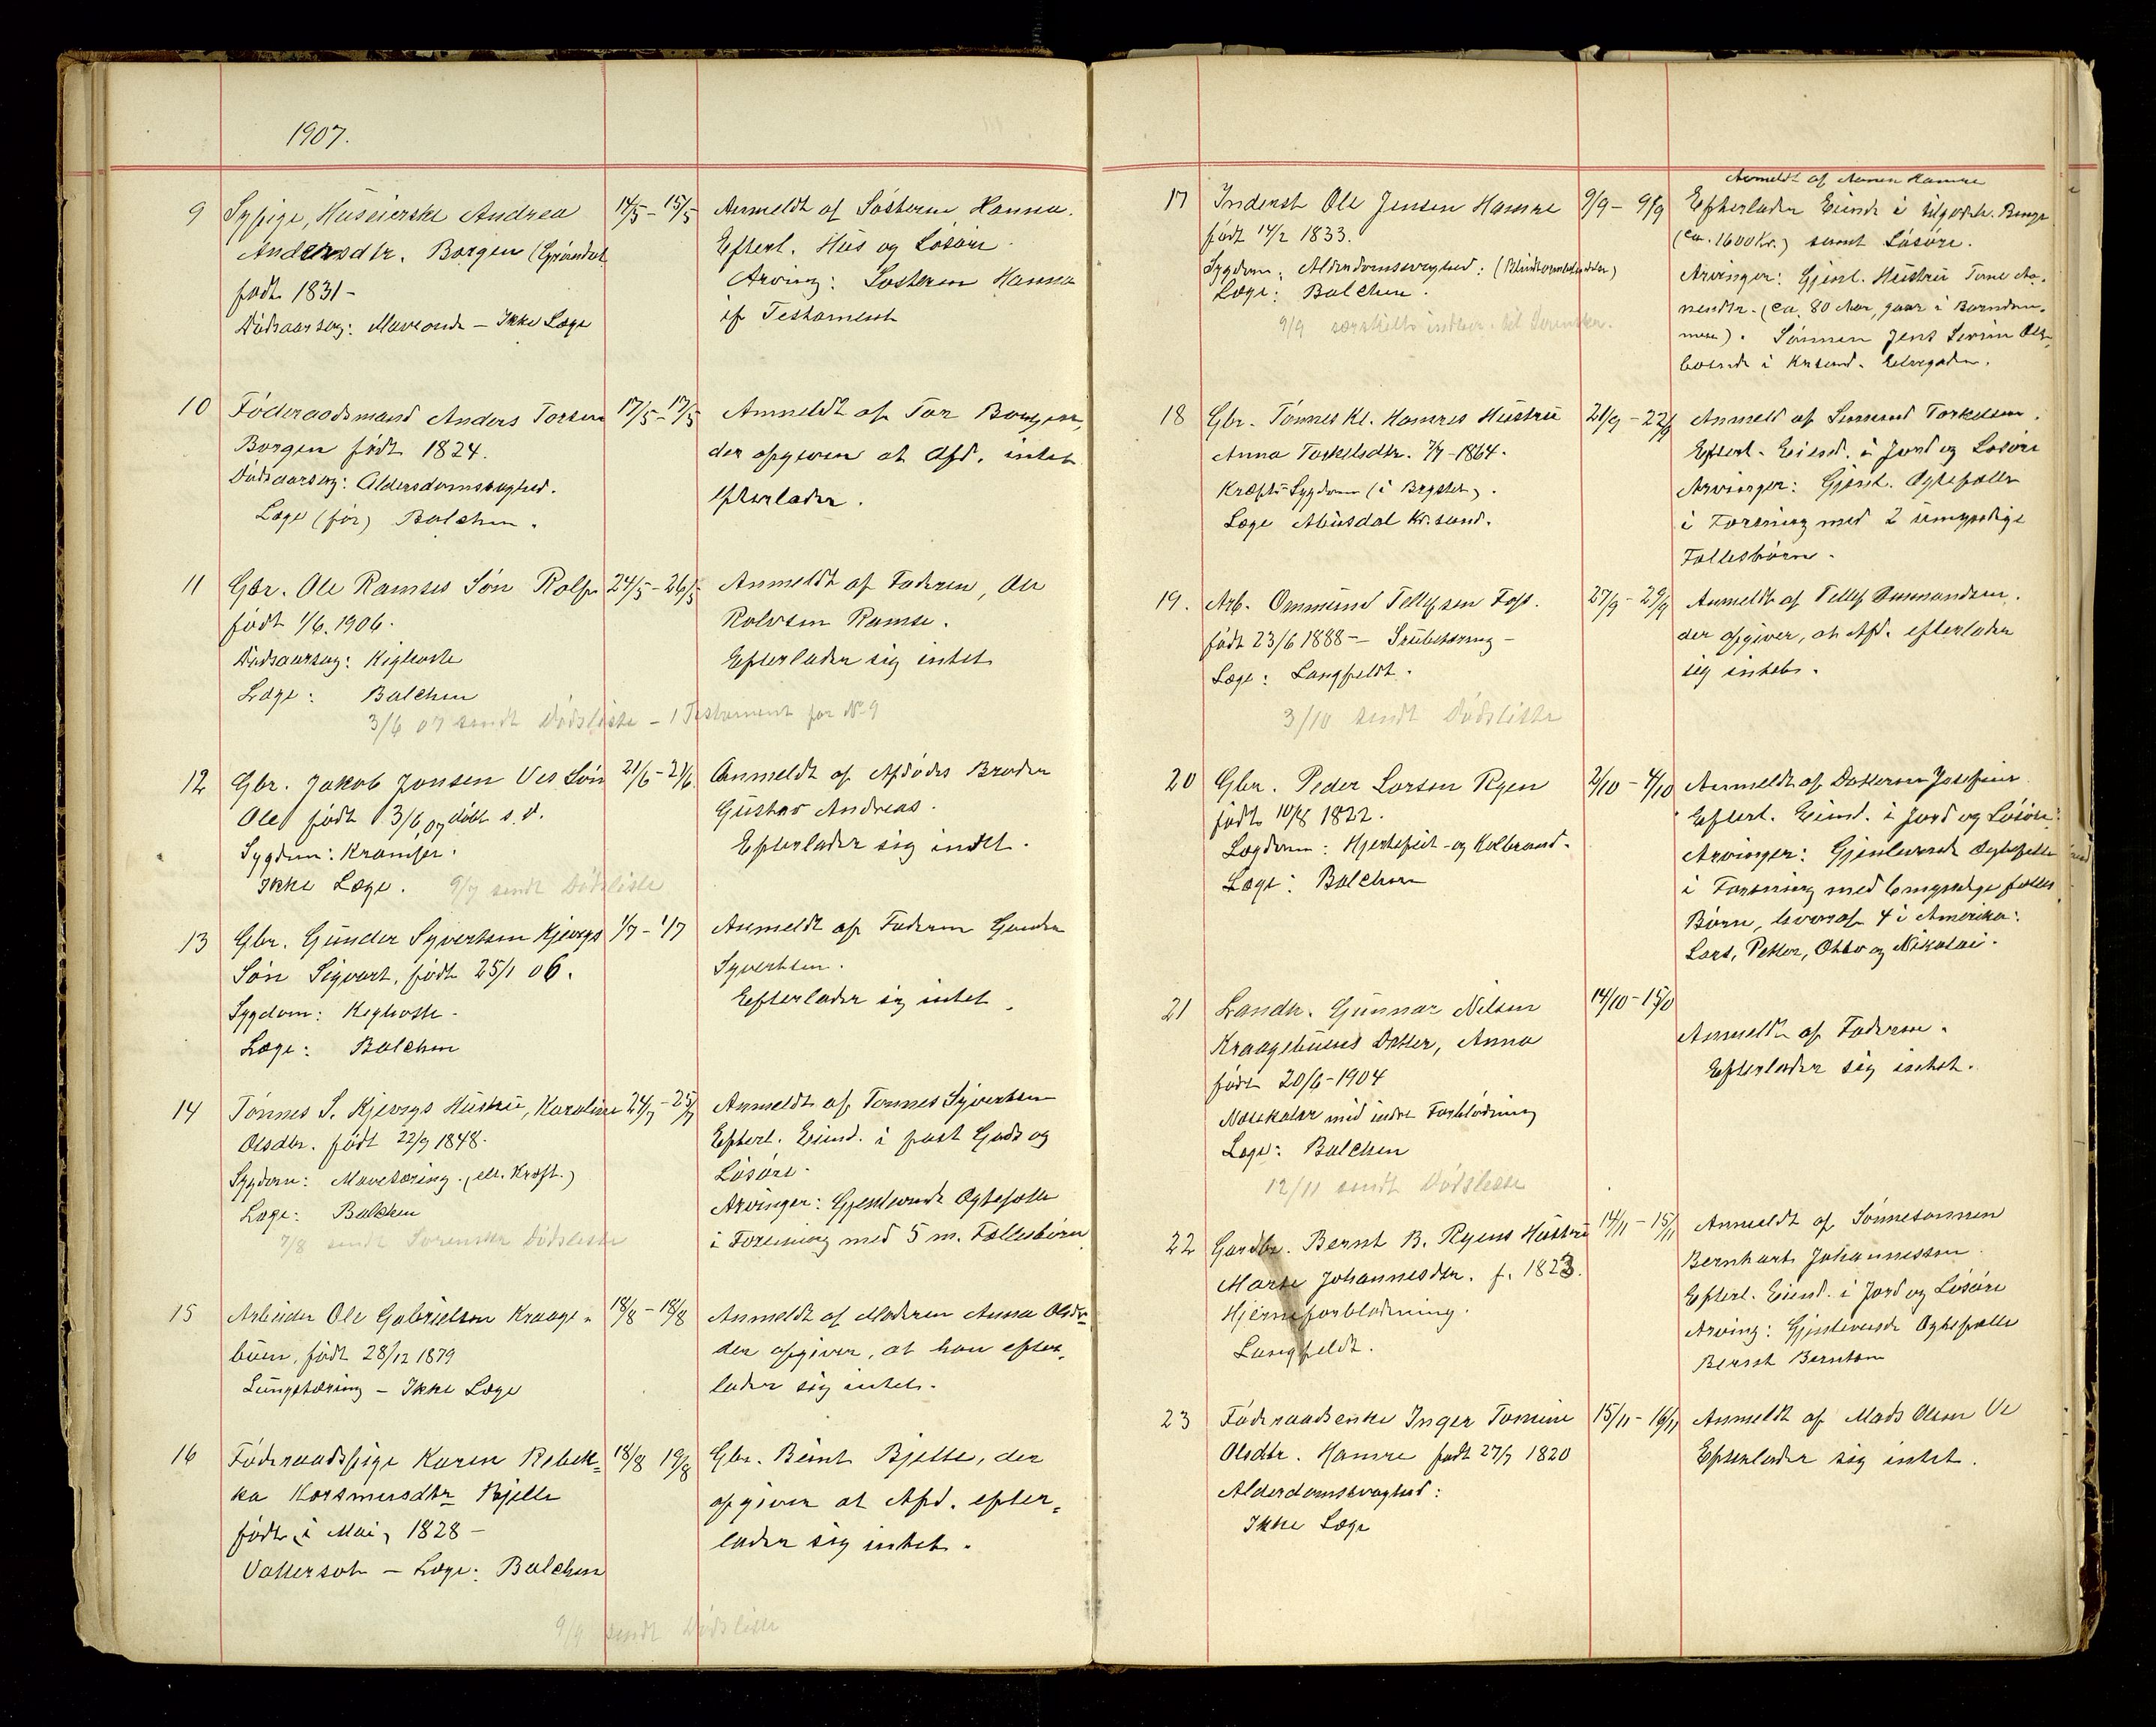 1907.
9 Sypige, Huseierske Andrea 14/5 - 15/5 Anmeldt af Søsteren Hanna.
Andersdtr. Borgen (Grøndal
Efterl. Hus og Løsøre.
født 1831 -
Arving: Søsteren Hanna
Dødsaarsag: Maveonde - Ikke Læge
if Testament
10 Føderaadsmand Anders Torsen 17/5 - 17/5 Anmeldt af Tor Borgen,
Borgen født 1824.
der opgiver at Afd. intet
Dødsaarsag: Aldersdomsvaghed.
efterlader.
Læge (før) Balchen.
11 Gbr. Ole Ramses Søn Rolf 24/5 - 26/5 Anmeldt af Faderen, Ole
født 1/6. 1906.
Rolvsen Ramse.
Dødsaarsag: Kighoste
Efterlader sig intet
Læge: Balchen
3/6 07 sendt Dødsliste - 1 Testament for No 9
12 Gbr. Jakob Jonsen Ves Søn 21/6 - 21/6. Anmeldt af Afdødes Broder
Ole født 13/6 07 døbt s. d.
Gustav Andreas.
Sygdom: Krampe.
Efterlader sig indtet.
Ikke Læge. 9/7 sendt Dødsliste
13 Gbr. Gunder Syvertsen Kjevigs 1/7 - 1/7 Anmeldt af Faderen Gunder
Søn Sigvart, født 25/1 06.
Syvertsen.
Sygdom: Kighoste.
Efterlader sig intet.
Læge: Balchen
14 Tønnes S. Kjevigs Hustru, Karoline 24/7 - 25/7 Anmeldt af Tønnes Syvertsen
Olsdtr. født 22/9 1848.
Efterl. Eiend. i fast Gods og
Løsøre.
Sygdom: Mavetæring. (ell. Kræft.)
Arvinger: Gjenlevende Ægtefælle
Læge: Balchen
7/8 sendt Sorensker Dødsliste
i Forening med 5 m. Fællesbørn
15 Arbeider Ole Gabrielsen Kraage- 18/8 - 18/8 Anmeldt af Moderen Anna Olsdtr
buen, født 28/12 1879
der opgiver, at han efter-
Lungetæring - Ikke Læge
lader sig intet.
16 Føderaadspige Karen Rebek- 18/8 19/8 Gbr. Berint Bjelle, der
ka Rasmusdtr Bjelle
opgiver at Afd. efter-
født i Mai, 1828 -
lader sig intet.
Vattersot - Læge: Balchen
9/9 sendt Dødsliste
Anmeldt af Hamre
17 Inderst Ole Jensen Hamre 9/9 - 9/9 Efterlader Eiende i tilgodeh. Penge
født 14/2 1833.
(ca. 1600 Kr.) samt Løsøre.
Sygdom: Alderdomsvaghed:
Arvinger: Gjenl. Hustru
Læge: Balchen.
(ca. 80 Aar, gaar i Barndom-
9/9 særskilt indber. til Sorensker.
men). Sønnen Jens Severin Ols.
boende i Krsand. Elvegaden.
18 Gbr. Tønnes Kl. Hamres Hustru 21/9 - 22/9 Anmeld af Torkelsen.
Anna Torkelsdtr. 7/7 - 1864.
Efterl. Eiend. i Jord og Løsøre
Kræft-Sygdom (i Brystet).
Arvinger: Gjenl. Ægtefælle
Læge Abusdal Kr.sand.
i Forening med 2 umyndige
Fællesbørn.
19. Arb. Ommund Tellefsen Foss. 27/9 - 29/9 Anmeldt af Tellef Ommundsen.
født 23/6 1888 -
der opgiver, at Afd. efterlader
Læge: Langfeldt.
sig intet.
3/10 sendt Dødsliste
20 Gbr. Peder Larsen Ryen 2/10 - 4/10 Anmeldt af Datteren Josefine
født 10/8 1822.
Efterl. Eiend. i Jord og Løsøre
Sygdom: Hjertefeil - og Kolbrand.
Arvinger: Gjenlevende Ægtefælle
Læge: Balchen
i Forening med 6 myndige fælles
Børn, hvoraf 4 i Amerika:
Lars, Petter, Otto og Nikolai.
21 Landh. Gunnar Nilsen 14/10 - 15/10
Kraagebuens Datter, Anna
Anmeldt af Faderen.
født 20/6 - 1904
Efterlader sig intet.
Næsekatar med indre Forblødning
Læge: Balchen
12/11 sendt Dødsliste
22 Gardbr. Bernt B. Ryens Hustru 14/11 - 15/11 Anmeldt af Sønnesønnen
Marte Johannesdtr. f. 1823.
Bernhart Johannessen.
Hjerneforblødning.
Efterl. Eiend. i Jord og Løsøre
Langfeldt.
Arving: Gjenlevende Ægtefælle
Bernt Berntsen
23 Føderaadsenke Inger Tomine 15/11 - 16/11 Anmeldt af Mads Olsen Ve
Olsdtr. Hamre født 27/7 1820
Efterlader sig intet.
Alderdomsvaghed:
Ikke Læge